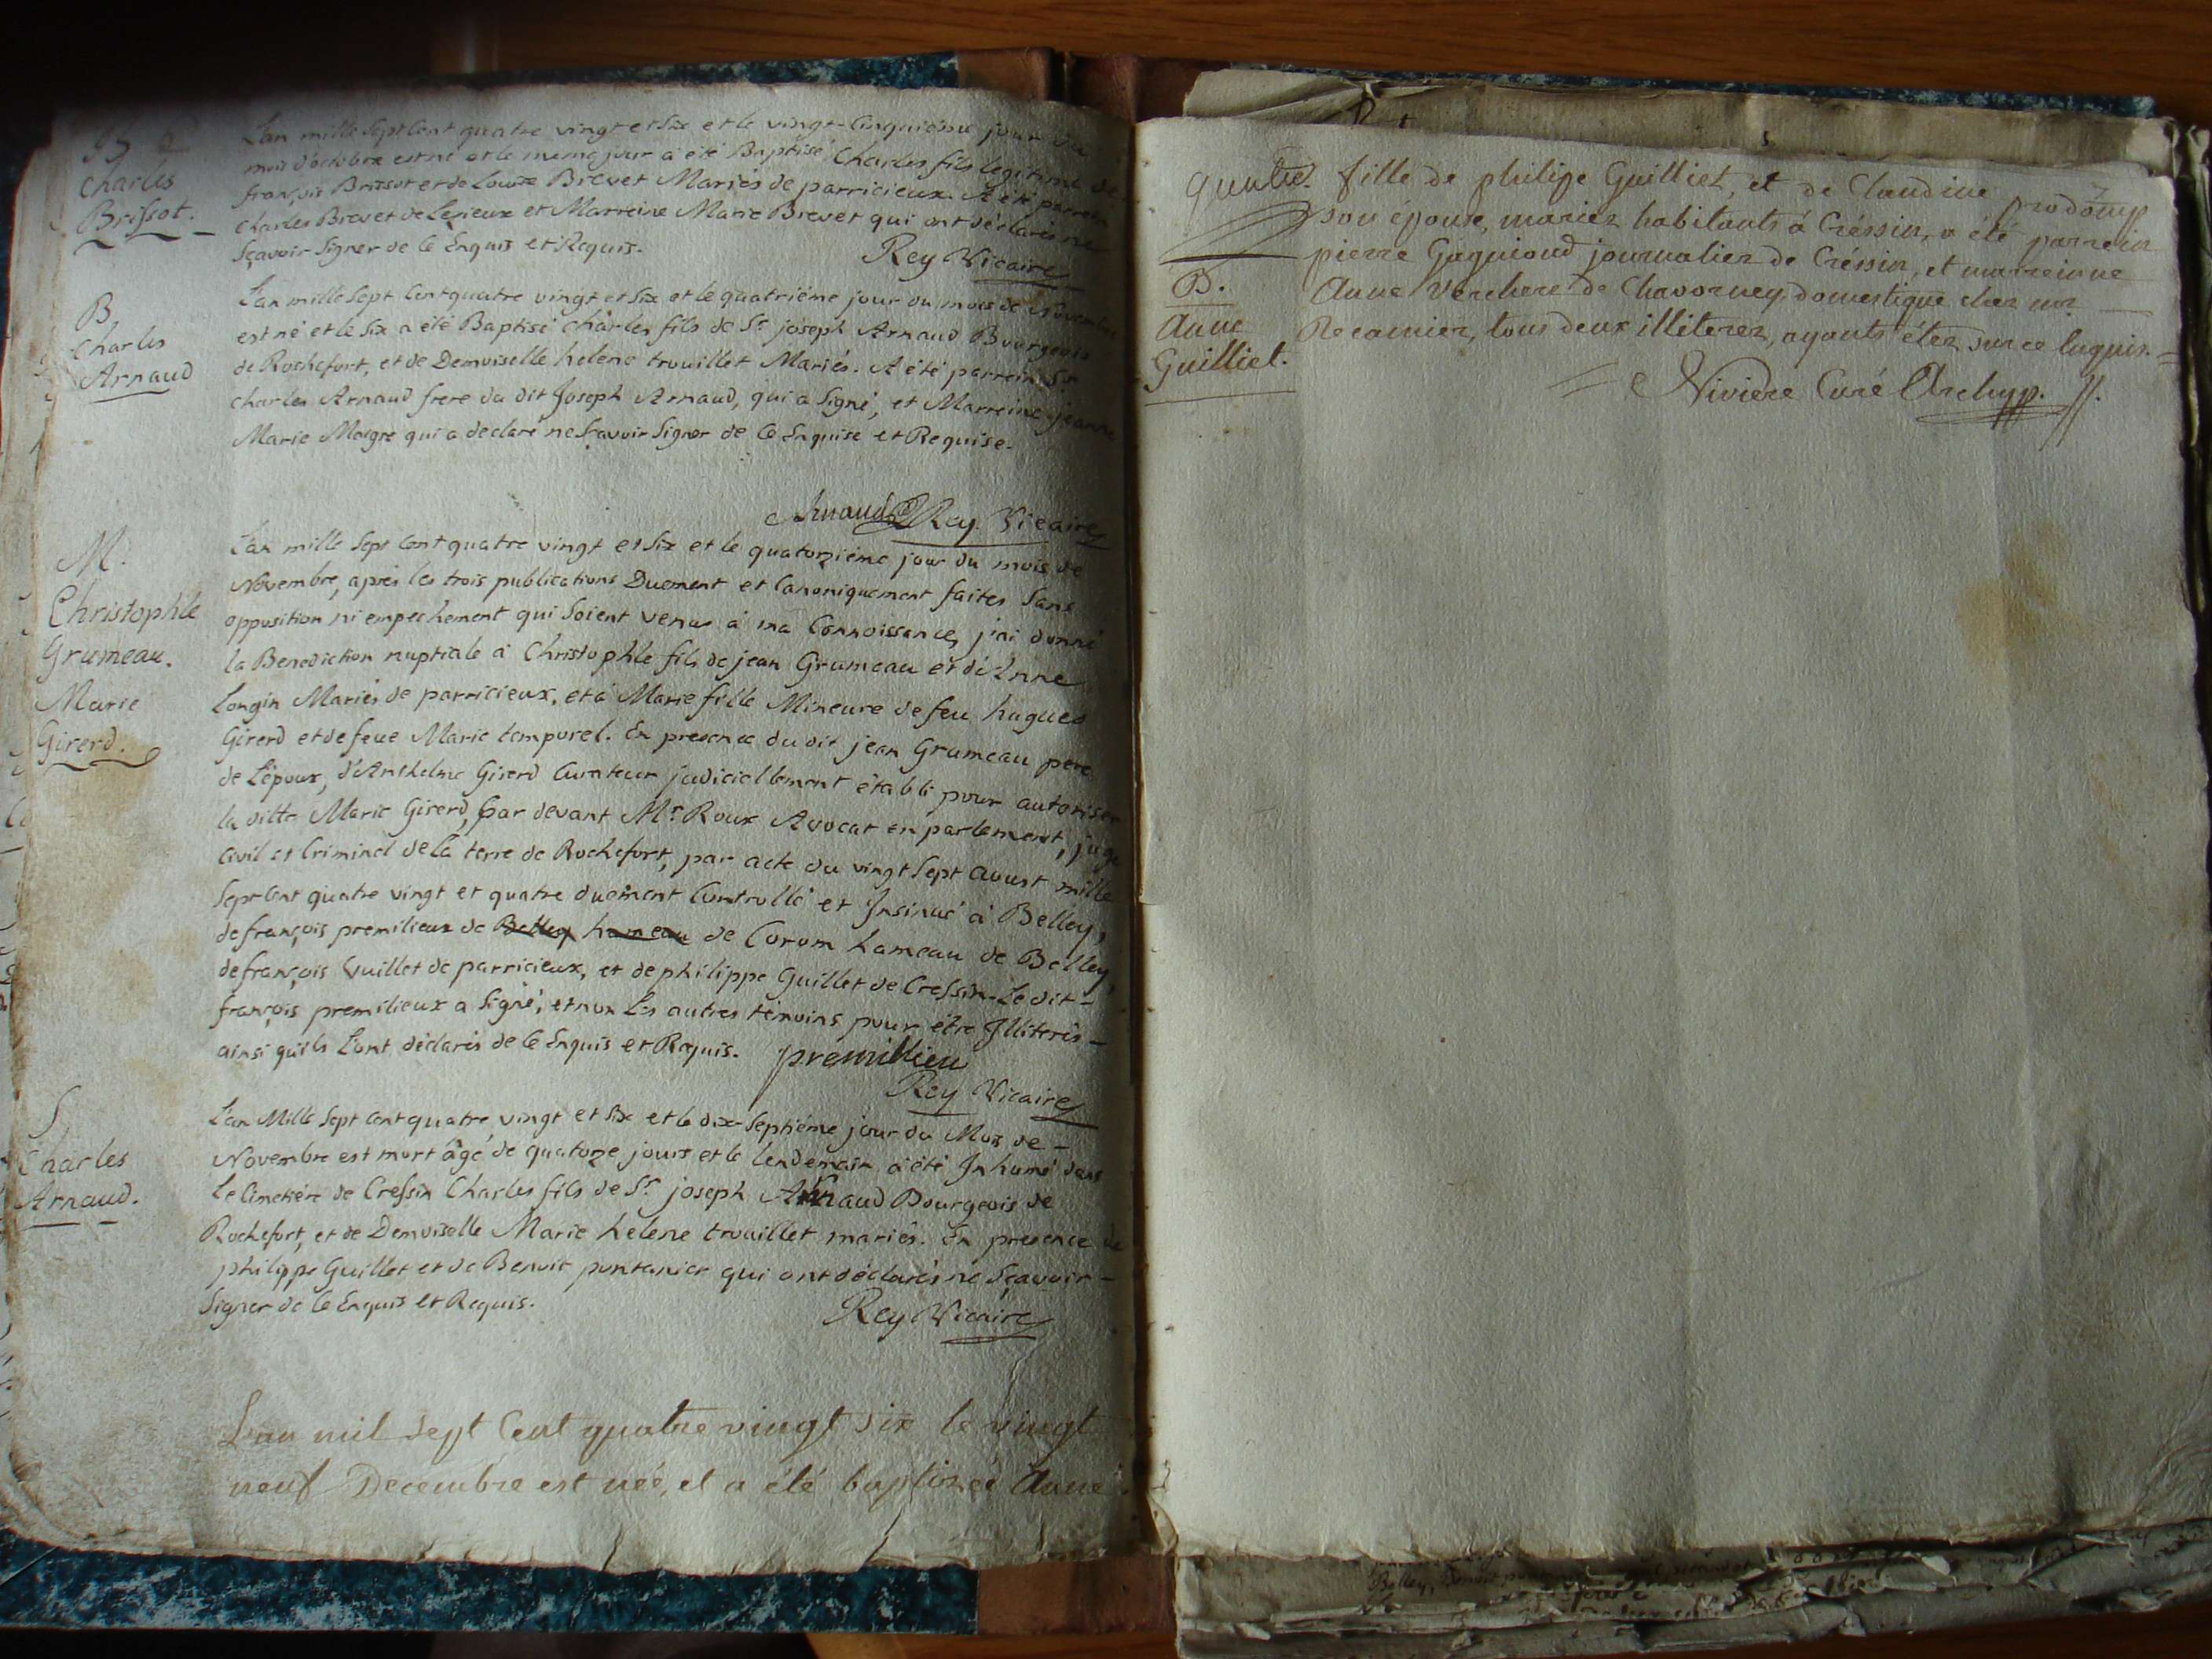 B
Charles
Brissot.
L'an mille sept cent quatre vingt et six et le vingt-cinquième jour du
mois d'octobre est né et le meme jour a été Baptisé Charles fils légitime de
françois Brissot et de Louise Brevet Mariés de parricieux. A été parrein
Charles Brevet de Lezieux et Marreine Marie Brevet qui ont déclarés ne
sçavoir signer de ce Enquis et Requis.
Rey Vicaire
B.
Charles
Arnaud
L'an mille sept cent quatre vingt et six et le quatrième jour du mois de Novembre
est né et le six a été Baptisé charles fils de Sr joseph Arnaud Bourgeois
de Rochefort, et de Demoiselle helene trouillet Mariés. A été parrein Sr
charles Arnaud frere du dit Joseph Arnaud, qui a signé, et Marreine jeanne
Marie Maigre qui a declaré ne sçavoir signer de ce Enquise et Requise.
Arnaud Rey Vicaire
M.
Christophle
Grumeau.
Marie
Girerd.
L'an mille sept cent quatre vingt et six et le quatorzième jour du mois de
Novembre, après les trois publications Duement et Canoniquement faites sans
opposition ni empechement qui soient venus à ma Connoissance, j'ai donné
la Benediction nuptiale à Christophle fils de jean Grumeau et d'Anne
Longin Mariés de parricieux, et à Marie fille Mineure de feu hugues
Girerd et de feue Marie temporel. En presence du dit jean Grumeau père
de L'époux, d'Anthelme Girerd Curateur judiciellement établi pour autoriser
la ditte Marie Girerd, par devant Mr Roux Avocat en parlement, juge
Civil et Criminel de la terre de Rochefort, par acte du vingt sept aoust mille
sept cent quatre vingt et quatre duement Controllé et Insinué à Belley,
de françois premilieux de Belley hameau de Corom hameau de Belley,
de françois Vuillet de parricieux, et de philippe Guillet de Cressin. Le dit
françois premilieux a signé, et non Les autres témoins pour être Illiterés
ainsi quils L'ont déclarés de ce Enquis et Requis. premillieu
Rey Vicaire
S.
Charles
Arnaud.
L'an Mille sept cent quatre vingt et six et le dix-septième jour du Mois de
Novembre est mort âgé de quatorze jours et le lendemain a été Inhumé dans
Le Cimetière de Cressin Charles fils de Sr joseph Arnaud Bourgeois de
Rochefort, et de Demoiselle Marie helene trouillet mariés. En presence de
philippe Guillet et de Benoit pontanier qui ont déclarés ne sçavoir
signer de ce Enquis et Requis.
Rey Vicaire
L'an mil sept Cent quatre vingt six le vingt
neuf Decembre est neé, et a été baptizée Anne
B.
Anne
Guilliet.
fille de philipe Guilliet, et de Claudine prodomp
son épouse, mariez habitants à Créssin, a été parrein
pierre Gagnioud journalier de Créssin, et marreinne
Anne Verchere de Chavorney domestique chez mr
Recamier, tous deux illiterez, ayants étez sur ce Enquis.
Nivière Curé Archyp.